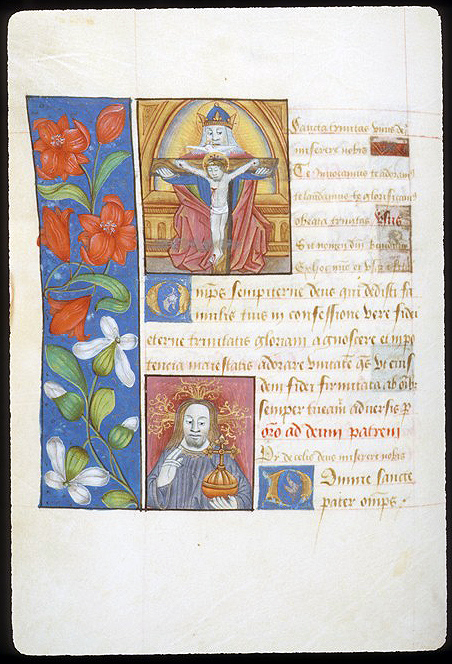 Sancta trinitas unus de
miserere nobis
Te invocamus te adoram
te laudamus te glorificam
o beata trinitas
Sit nomen dni benedictu
Omps sempiterne deus qui dedisti fa
mulis tuis in confessione vere fidei
eterne trinitatis gloriam agnoscere et in po
tencia maiestatis adorare unitate qs ut eius
dem fidei firmitate ab oib
semper tueam adversis p
Oro ad deum patrem
Pr de celis deus miserere nobis
Domine sancte
pater omps